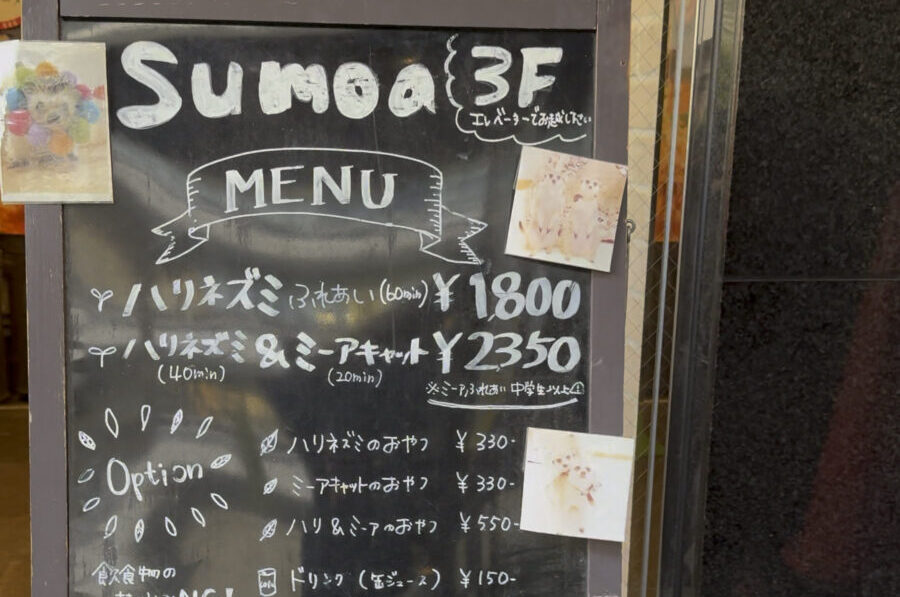 Sumoa 3F
エレベーターでお越し下さい
MENU
ハリネズミ ふれあい (60min) ¥1,800
ハリネズミ & ミーアキャット ¥2,350
(40min) (20min)
※ミーアふれあい 中学生以上
Option
ハリネズミのおやつ ¥330-
ミーアキャットのおやつ ¥330-
ハリ&ミーアのおやつ ¥550-
飲食物の
NG!
ドリンク (缶ジュース) ¥150-